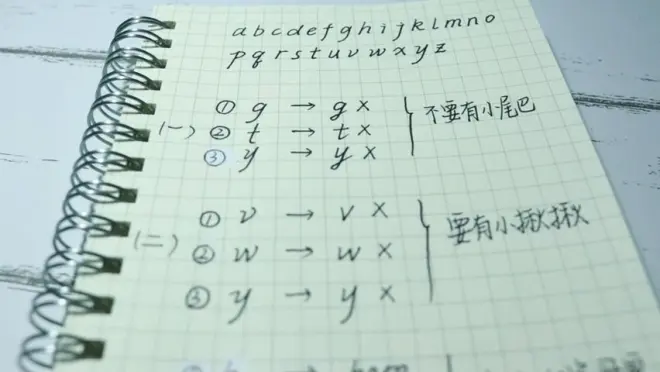 a b c d e f g h i j k l m n o
p q r s t u v w x y z
(一) ① g → g ×
② t → t ×
③ y → y ×
不要有小尾巴
(二) ① v → v ×
② w → w ×
③ y → y ×
要有小揪揪